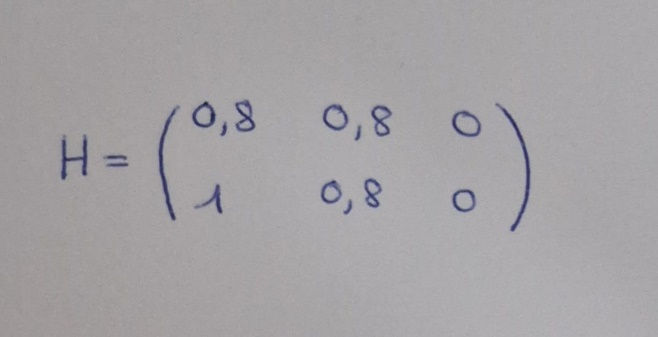 H = ( 0,8 0,8 0
1 0,8 0 )